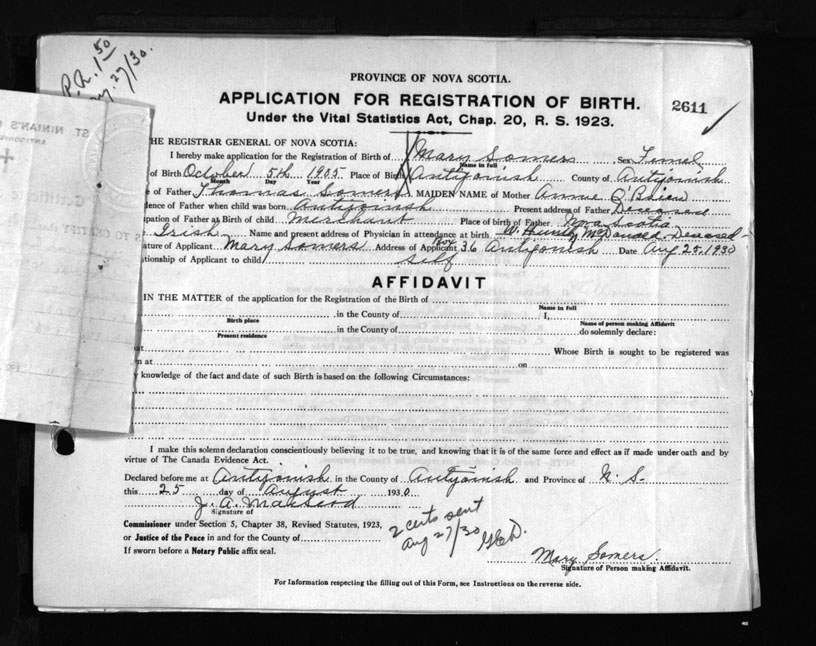 P.R. 1.50
27/30.
ST NINIAN'S
PROVINCE OF NOVA SCOTIA.
APPLICATION FOR REGISTRATION OF BIRTH.
2611
Under the Vital Statistics Act, Chap. 20, R. S. 1923.
THE REGISTRAR GENERAL OF NOVA SCOTIA:
I hereby make application for the Registration of Birth of Mary Somers Sex Femel
Name in full
of Birth October 5th 1905 Place of Birth Antigonish County of Antigonish
Month Day Year
e of Father Thomas Somers MAIDEN NAME of Mother Annie O'Brien
dence of Father when child was born Antigonish Present address of Father Deceased
ipation of Father at Birth of child Merchant Place of birth of Father Nova Scotia
Irish Name and present address of Physician in attendance at birth W. Huntly McDonald - Deceased -
ature of Applicant Mary Somers Address of Applicant Box 36 Antigonish Date Aug 25, 1930
tionship of Applicant to child self
AFFIDAVIT
IN THE MATTER of the application for the Registration of the Birth of
Name in full
in the County of I,
Birth place Name of person making Affidavit
in the County of do solemnly declare:
Present residence
at Whose Birth is sought to be registered was
n at on
y knowledge of the fact and date of such Birth is based on the following Circumstances:
I make this solemn declaration conscientiously believing it to be true, and knowing that it is of the same force and effect as if made under oath and by
virtue of The Canada Evidence Act.
Declared before me at Antigonish in the County of Antigonish and Province of N. S.
this 25 day of August 1930
J. A. MacLeod
Signature of
Commissioner under Section 5, Chapter 38, Revised Statutes, 1923,
or Justice of the Peace in and for the County of
If sworn before a Notary Public affix seal.
2 certs sent
Aug 27/30
Mary Somers.
Signature of Person making Affidavit.
For Information respecting the filling out of this Form, see Instructions on the reverse side.